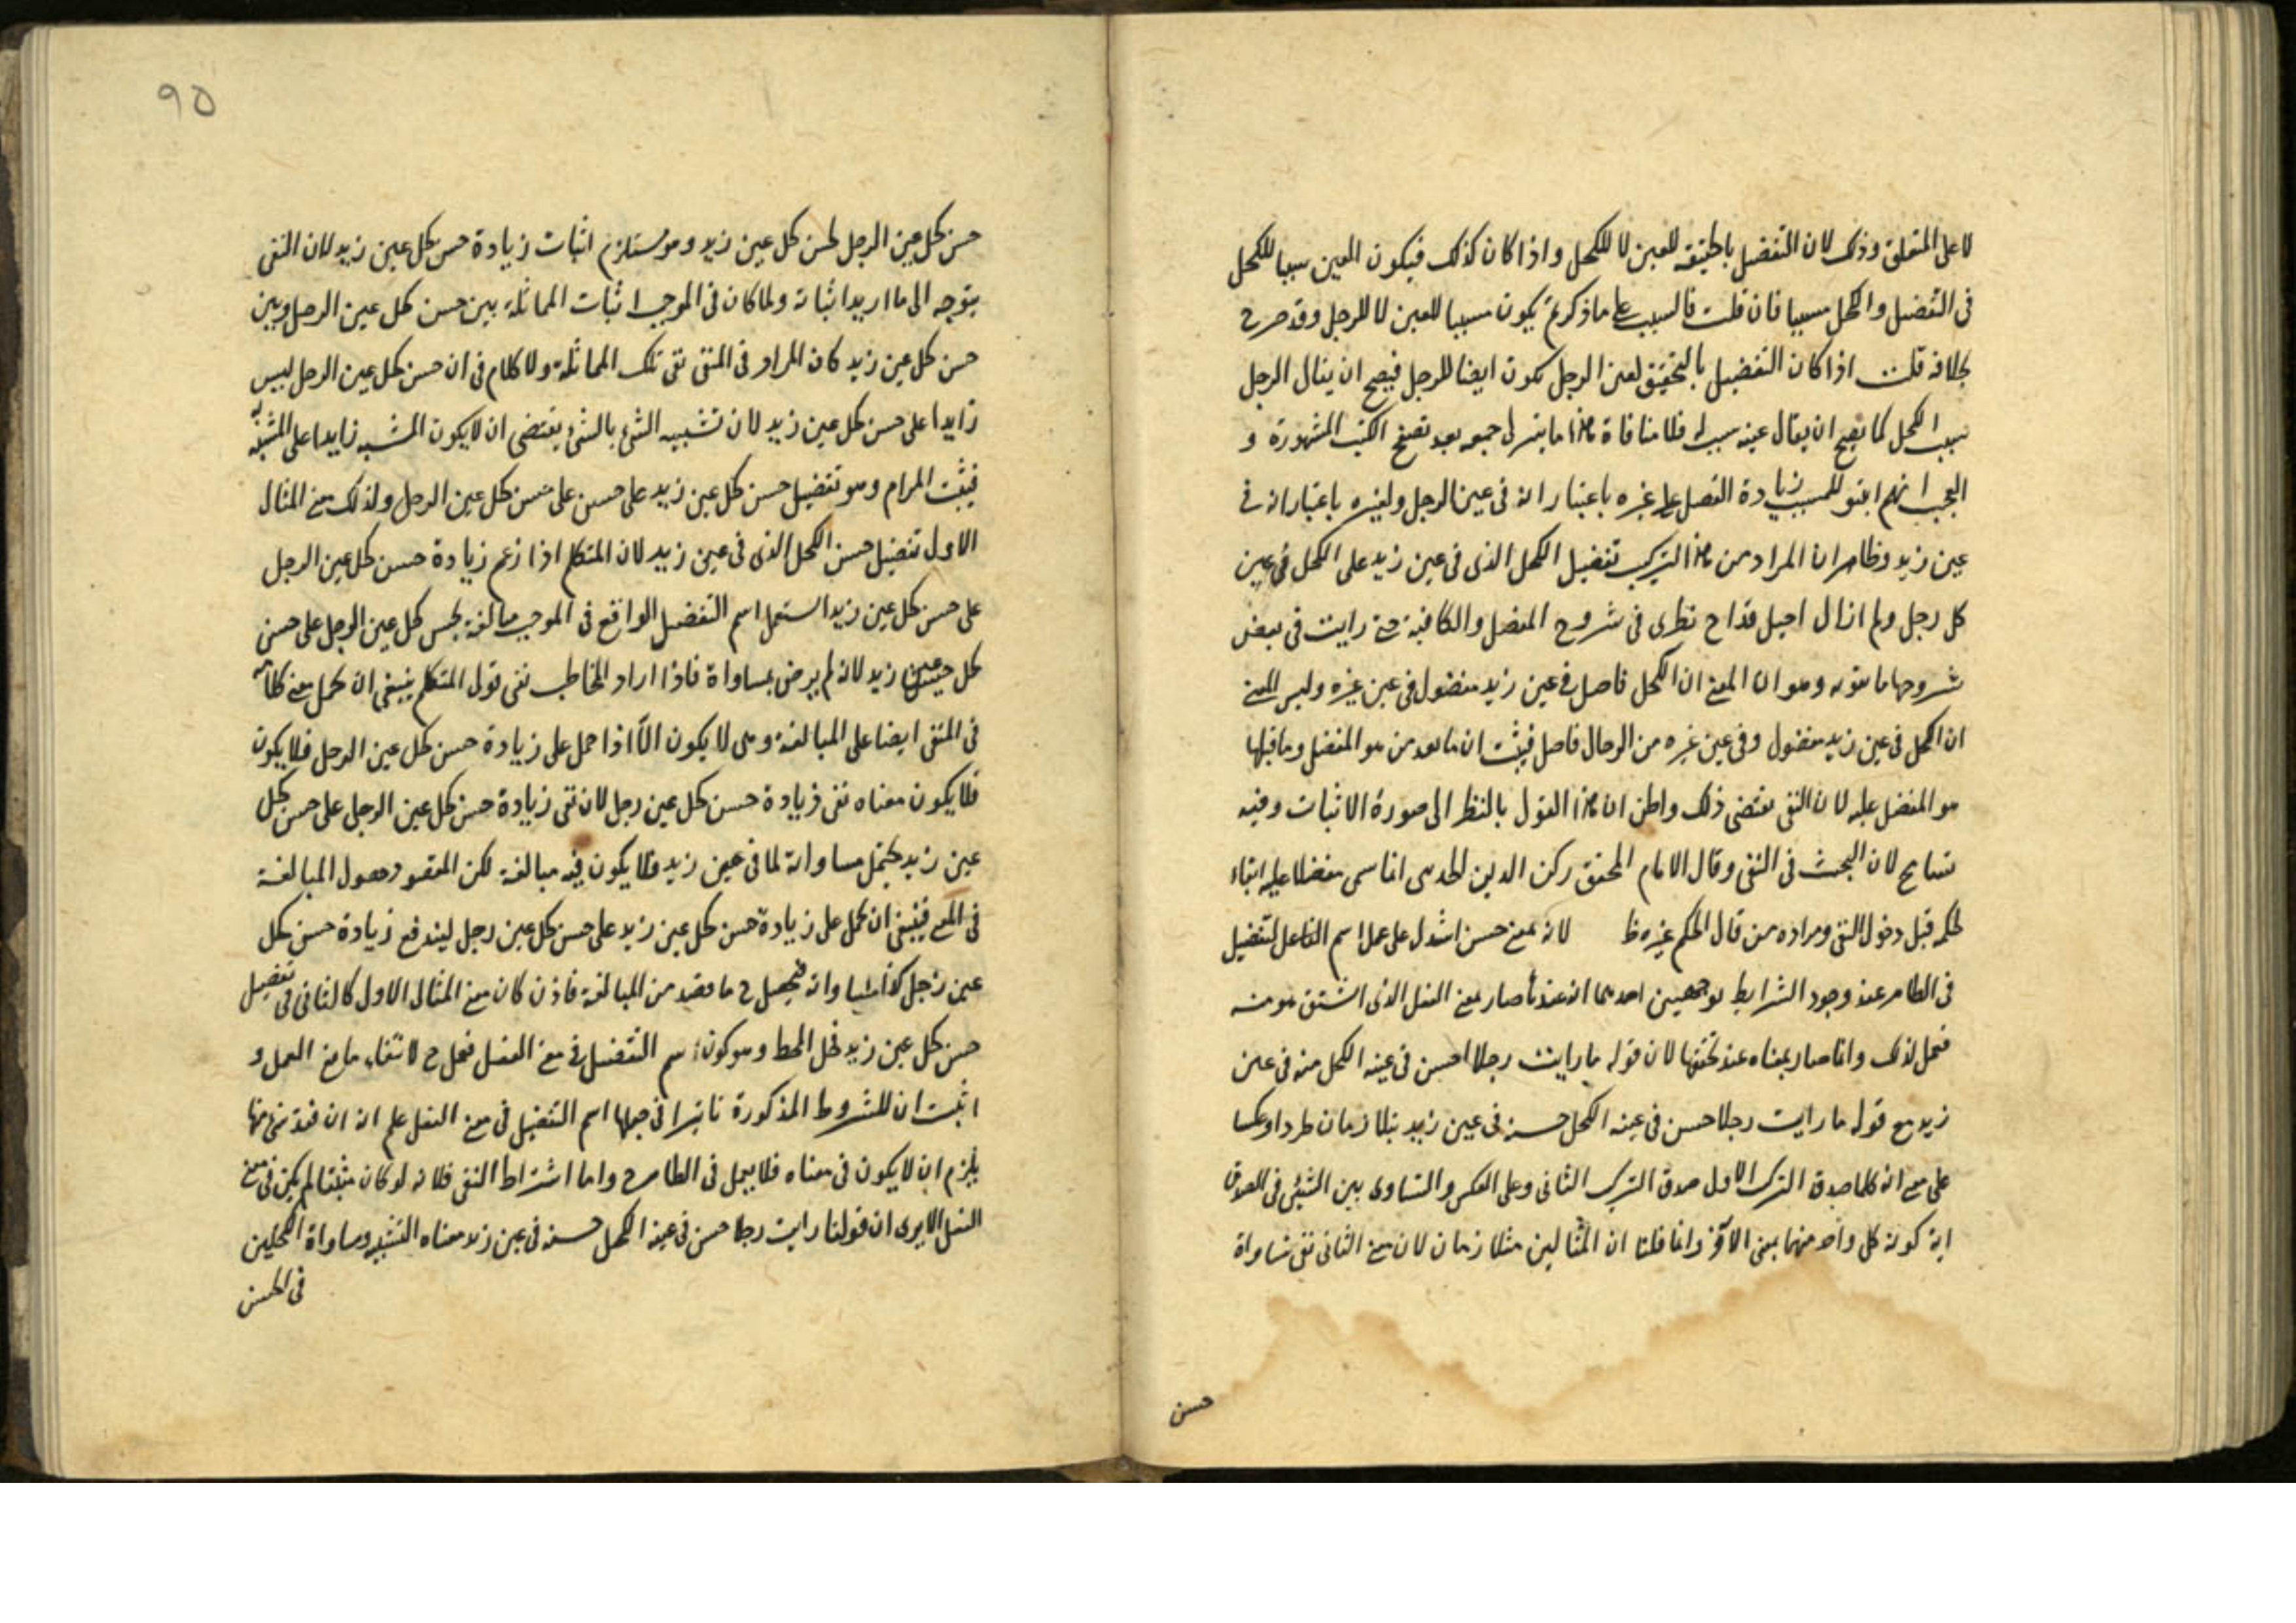 لا على المتعلق وذلك لان التفضيل بالحقيقة للعين لا للكحل واذا كان كذلك فيكون العين سببا للكحل
فى التفضيل والكحل مسببا فان قلت فالسبب على ما ذكرتم يكون سببا للعين لا للرجل وقد صرح
بخلافه قلت اذا كان التفضيل بالتحقيق لعين الرجل يكون ايضا للرجل فيصح ان يقال الرجل
سبب الكحل كما يصح ان يقال عينه سبب له فلا منافاة هذا ما تيسر لى جمعه بعد تصفح الكتب المشهورة و
العجب انهم اثبتوا للمسبب زيادة الفضل على غيره باعتبار انه فى عين الرجل ولغيره باعتبار انه فى
عين زيد وظاهر ان المراد من هذا التركيب تفضيل الكحل الذى فى عين زيد على الكحل فى عين
كل رجل ولم ازال اجيل قداح نظرى فى شروح المفصل والكافية حتى رايت فى بعض
شروحها ما وهو ان المعنى ان الكحل فاضل فى عين زيد مفضول فى عين غيره وليس المعنى
ان الكحل فى عين زيد مفضول وفى عين غيره من الرجال فاضل فيثبت ان ما بعد من هو المفضل وما قبلها
هو المفضل عليه لان النفى يقتضى ذلك واظن ان هذا القول بالنظر الى صورة الاثبات وفيه
تسامح لان البحث فى النفى وقال الامام المحقق ركن الدين الحديثى انما سمى مفضلا عليه ابقاء
لحكمه قبل دخول النفى ومراده من قال الحكم غيره ظ لانه بمعنى حسن استدل على عمل اسم الفاعل لتفضيل
فى الظاهر عند وجود الشرايط بوجهين احدهما انه عندها صار بمعنى الفعل الذى اشتق هو منه
فعمل لذلك وانما صار بمعناه عند تحققها لان قوله ما رايت رجلا احسن فى عينه الكحل منه فى عين
زيد مع قوله ما رايت رجلا حسن فى عينه الكحل حسنه فى عين زيد يتلازمان طردا وعكسا
على معنى انه كلما صدق التركيب الاول صدق التركيب الثانى وعلى العكس والتساوى بين الشيئين فى الصدق
اية كونه كل واحد منهما بمعنى الآخر وانما قلنا ان المثالين متلازمان لان معنى الثانى نفى مساواة
حسن
٩٥
حسن كحل عين الرجل لحسن كحل عين زيد وهو مستلزم اثبات زيادة حسن كحل عين زيد لان النفى
يتوجه الى ما اريد اثباته ولما كان فى الموجب اثبات المماثلة بين حسن كحل عين الرجل وبين
حسن كحل عين زيد كان المراد فى المنفى نفى تلك المماثلة ولا كلام فى ان حسن كحل عين الرجل ليس
زايدا على حسن كحل عين زيد لان تشبيه الشئ بالشئ يقتضى ان لا يكون المشبه زايدا على المشبه به
فيثبت المرام وهو تفضيل حسن كحل عين زيد على حسن على حسن كحل عين الرجل ولذلك معنى المثال
الاول تفضيل حسن الكحل الذى فى عين زيد لان المتكلم اذا زعم زيادة حسن كحل عين الرجل
على حسن كحل عين زيد استعمل اسم التفضيل الواقع فى الموجب مبالغة لحسن كحل عين الرجل على حسن
كحل عين زيد لانه لم يرض بمساواة فاذا اراد المخاطب نفى قول المتكلم ينبغى ان يحمل معنى كلامه
فى المنفى ايضا على المبالغة وهى لا يكون الا اذا حمل على زيادة حسن كحل عين الرجل فلا يكون
فلا يكون معناه نفى زيادة حسن كحل عين رجل لان نفى زيادة حسن كحل عين الرجل على حسن كحل
عين زيد يحتمل مساواته لما فى عين زيد فلا يكون فيه مبالغة لكن المقصود حصول المبالغة
فى المعنى فينبغى ان يحمل على زيادة حسن كحل عين زيد على حسن كحل عين رجل ليندفع زيادة حسن كحل
عين رجل كذا مساواته فيحصل ح ما قصد من المبالغة فاذن كان معنى المثال الاول كالثانى فى تفضيل
حسن كحل عين زيد وهو كون اسم التفضيل فى معنى الفعل فعمل ح لانتفاء مانع العمل و
اثبت ان للشروط المذكورة تاثيرا فى جعلها اسم التفضيل فى معنى الفعل علم انه ان فقد شئ منها
يلزم ان لا يكون فى معناه فلا يعمل فى الظاهر ح واما اشتراط النفى فلانه لو كان مثبتا لم يكن فى معنى
الفعل الا يرى ان قولنا رايت رجلا حسن فى عينه الكحل حسنه فى عين زيد معناه التشبيه ومساواة الكحلين
فى الحسن